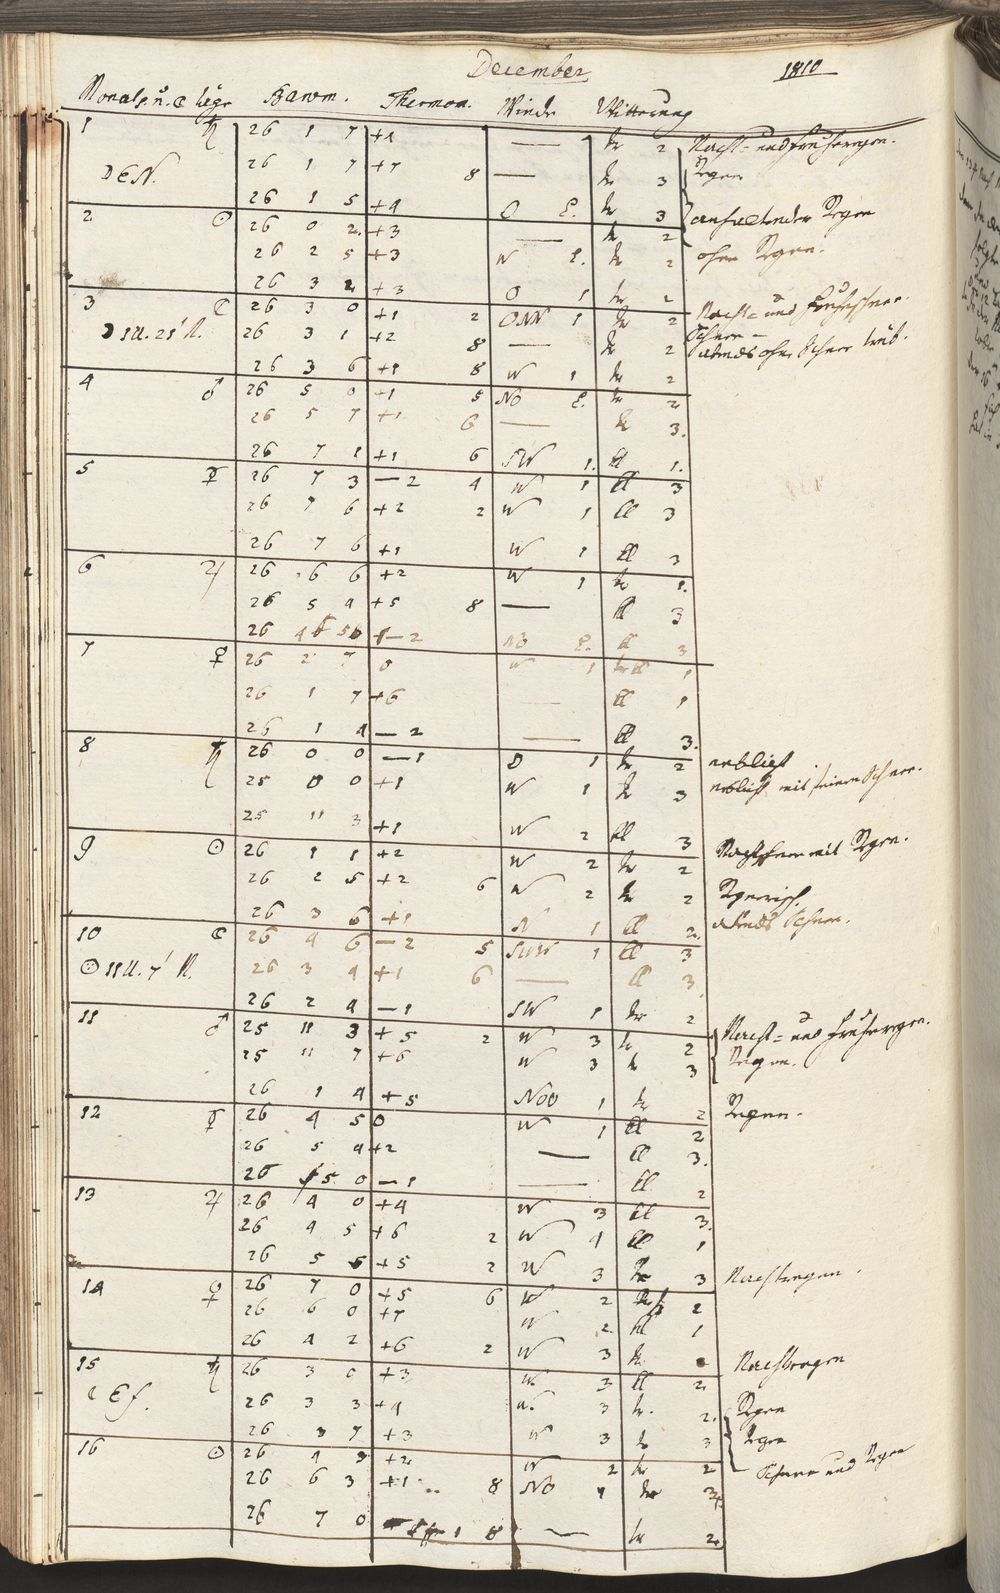 December 1810
Monats u. ☾ tage Barom. Thermom. Winde Witterung
1 ♄ 26 1 7 +4 — tr 2 Nacht- und Frühregen.
☽ EN. 26 1 7 +7 8 — tr 3 Regen
26 1 5 +4 O tr 3 anhaltender Regen
2 ☉ 26 0 2 +3 — tr 2
26 2 5 +3 W tr 2 ohne Regen.
26 3 2 +3 O 1 tr 2
3 ☾ 26 3 0 +1 2 ONN 1 tr 2 Nacht- und Frühschnee.
☽ 5 U. 21' N. 26 3 1 +2 8 — tr 2 Schnee —
abends ohne Schnee trüb.
26 3 6 +1 8 W 1 tr 2
4 ♂ 26 5 0 +1 5 NO tr 2
26 5 7 +1 6 — tr 3.
26 7 1 +1 6 SW 1. tr 1.
5 ☿ 26 7 3 —2 4 W 1 ll 3
26 7 6 +2 2 W 1 ll 3
26 7 6 +1 W 1 ll 3
6 ♃ 26 6 6 +2 W 1 tr 1.
26 5 4 +5 8 — ll 3
26 4 —2 NO ll 3
7 ♀ 26 2 7 0 W 1 tr ll 1
26 1 7 +6 — ll 1
26 1 4 —2 — ll 3.
8 ♄ 26 0 0 —1 O 1 tr 2 neblicht
25 0 0 +1 W 1 tr 3 neblicht mit feinem Schnee.
25 11 3 +1 W 2 ll 3
9 ☉ 26 1 1 +2 W 2 tr 2 Nachtschnee mit Regen.
26 2 5 +2 6 W 2 tr 2 Regnerisch
26 3 6 +1 N 1 ll 2. abends Schnee.
10 ☾ 26 4 6 —2 5 SWW 1 ll 3
☉ 11 U. 7' N. 26 3 4 +1 6 — ll 3
26 2 4 —1 SW 1 tr 2
11 ♂ 25 11 3 +5 2 W 3 tr 2 Nacht- und Frühregen.
25 11 7 +6 W 3 tr 3 Regen.
26 1 4 +5 NOO 1 tr 2 Regen.
12 ☿ 26 4 5 0 W 1 ll 2
26 5 4 +2 — ll 3.
26 5 0 —1 — ll 2
13 ♃ 26 4 0 +4 W 3 ll 3.
26 4 5 +6 2 W 4 ll 1
26 5 5 +5 2 W 3 tr 3 Nachtregen.
14 ♀ 26 7 0 +5 6 W 2 2
26 6 0 +7 W 2 tr 1
26 4 2 +6 2 W 3 tr. Nachtregen
15 ♄ 26 3 0 +3 W 3 ll 2
☾ Ef. 26 3 3 +4 W. 3 tr. 2. Regen
26 3 7 +3 W 3 tr 3 Regen
16 ☉ 26 4 3 +2 W 2 tr 2 Schnee und Regen
26 6 3 +1 8 NO 1 tr 3
26 7 0 1 8 — tr 2